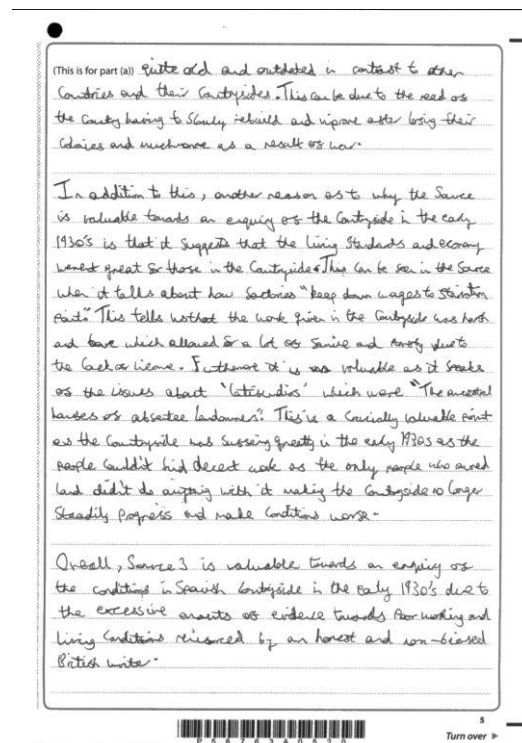 (This is for part (a)) quite old and outdated in contrast to other
Countries and their Countrysides. This can be due to the need of
the Country having to Slowly rebuild and improve after losing their
Colonies and much more as a result of war.
In addition to this, another reason as to why the Source
is valuable towards an enquiry of the Countryside in the early
1930's is that it suggests that the living Standards and economy
werent great for those in the Countryside. This can be seen in the Source
when it tells about how factories "keep down wages to Starvation
Point". This tells us that the work given in the Countryside was harsh
and which allowed for a lot of and Poverty due to
the lack of income. Furthermore it is valuable as it Speaks
of the issues about 'latifundios' which were "The ancestral
houses of absentee landowners". This is a Crucially valuable point
as the Countryside was greatly in the early 1930s as the
people Couldn't find decent work as the only people who owned
land didn't do anything with it making the Countryside no longer
Steadily Progress and make Conditions worse.
Overall, Source 3 is valuable towards an enquiry of
the conditions in Spanish Countryside in the early 1930's due to
the excessive amounts of evidence towards Poor working and
living Conditions reinforced by an honest and non-biased
British writer.
5
P56763A0520
Turn over